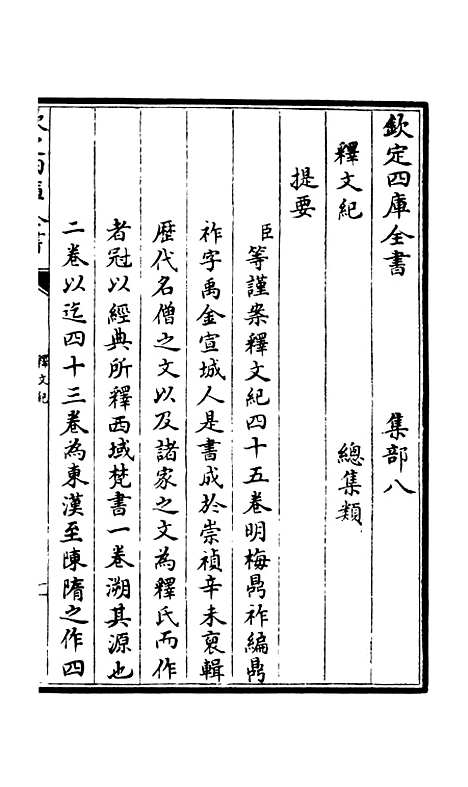 欽定四庫全書　集部八
釋文紀　總集類
提要
臣等謹案釋文紀四十五卷明梅鼎祚編鼎
祚字禹金宣城人是書成於崇禎辛未裒輯
歷代名僧之文以及諸家之文為釋氏而作
者冠以經典所釋西域梵書一卷溯其源也
二卷以迄四十三卷為東漢至陳隋之作四
釋文紀